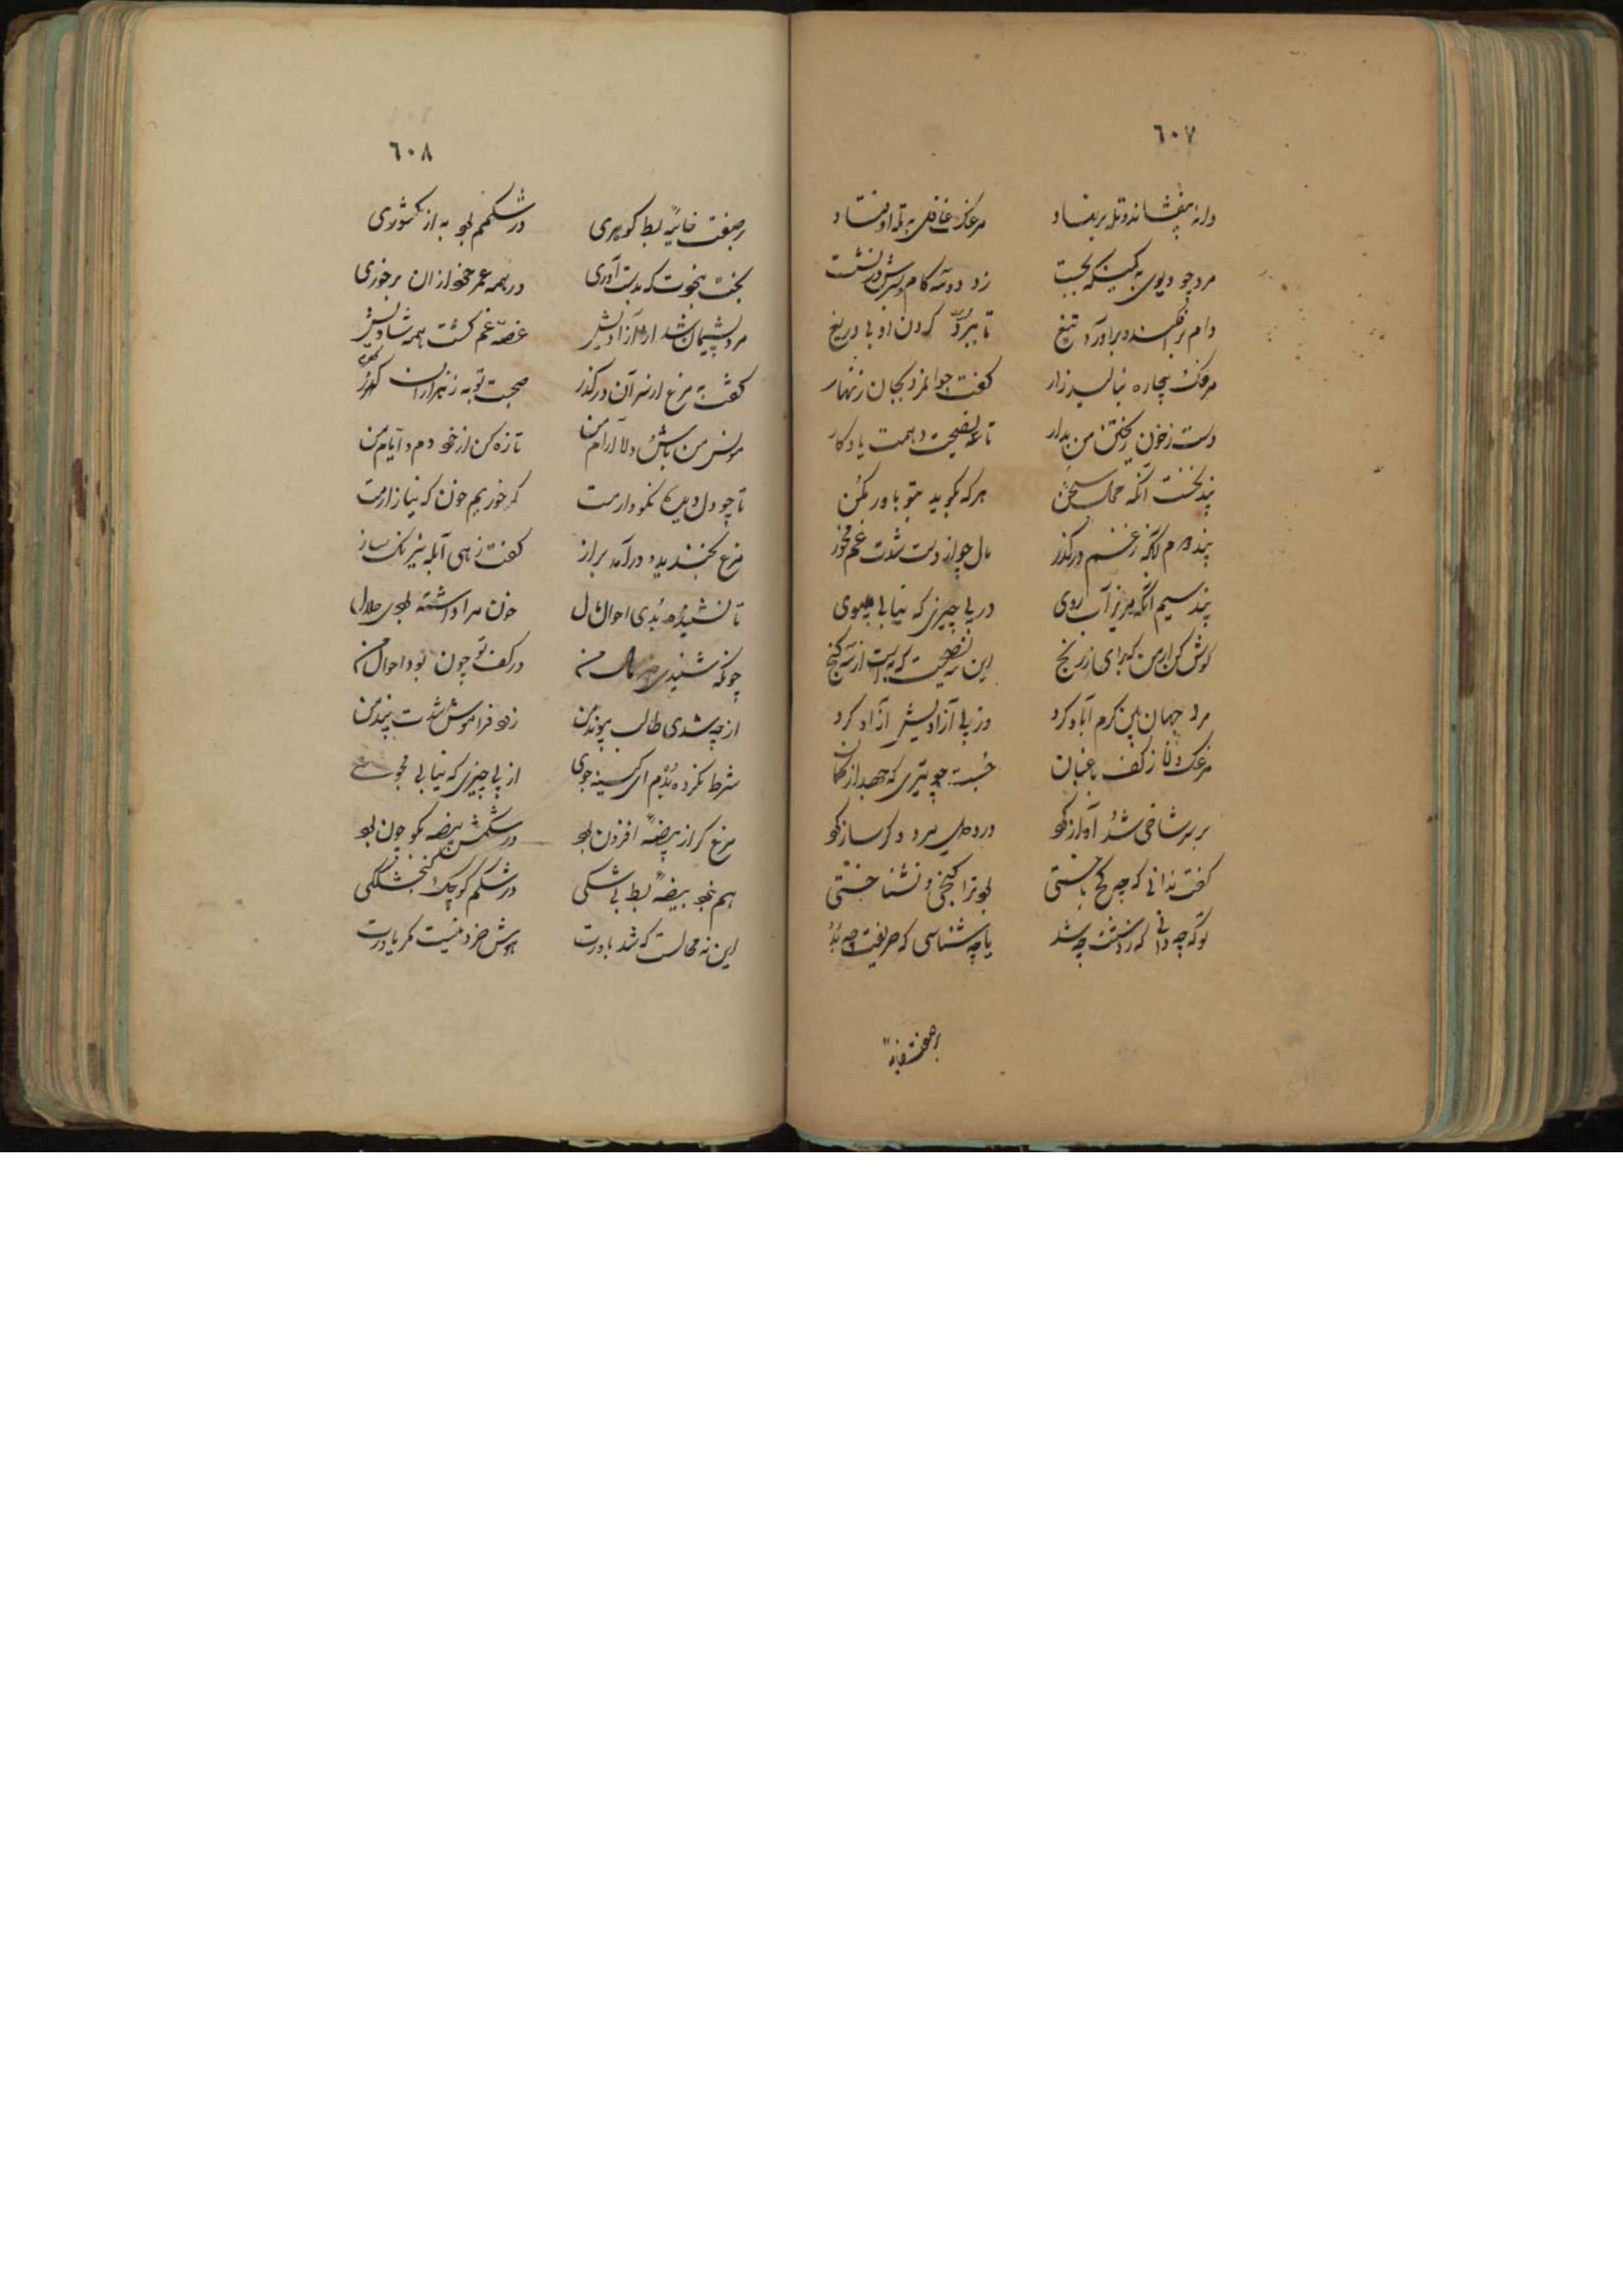 ٦٠٧
دانه بیفشاند و تله بر نهاد    مرغک غافل به تله اوفتاد
مرد چو دیوی ز کمینگه بجست    زد دو سه گام و
دام برافکند و برآورد تیغ    تا ببرد گردن او بی دریغ
مرغک بیچاره بنالید زار    گفت جوانمرد بجان زنهار
دست ز خون ریختن من بدار    تا نصیحت دهمت یادگار
پند نخست آنکه محال سخن    هر که بگوید بتو باور مکن
پند دوم آنکه ز غم درگذر    مال چو از دست شدت غم مخور
پند سیم آنکه مریز آب روی    در پی چیزی که نیابی مپوی
گوش کن از من که برای ز رنج    این سه نصیحت که به است از سه گنج
مرد جهان بین کرم آباد کرد    وز پی آزادیش آزاد کرد
مرغک دانا ز کف باغبان    جست چو تیری که جهد از کمان
بر سر شاخی شد آواز کرد    سرود دگر ساز کرد
گفت ندانی که چه گنج    بود ترا گنجی و نشناختی
تو که چه دانی که ز دستت چه شد    یا چه شناسی که حریفت چه بد
بیضهٔ
٦٠٨
بیضهٔ بط گوهری    در شکمم بود به از کشوری
بخت نبودت که بدست آوری    در همه عمر خود از آن برخوری
مرد پشیمان شد از آزادیش    غصه و غم گشت همه شادیش
گفت به مرغ از سر آن درگذر    صحبت تو به ز هزاران گهر
مونس من باش و دلارام من    تازه کن از خود دم و ایام من
تا چو دل و دیده نکو دارمت    گر خوریم خون که نیازارمت
مرغ بخندید و درآمد براز    گفت زهی ابله نیرنگ ساز
تا نشنیده بدی احوال مال    خون مرا داشته بودی حلال
چونکه شنیدی خبر مال من    در کف تو چون بود احوال من
از چه شدی طالب پیوند من    زود فراموش شدت پند من
شرط نکرده بدم ای کینه جوی    از پی چیزی که نیابی مجوی
مرغ کز از بیضه افزون بود    در شکمش بیضه بگو چون بود
هم نبود بیضهٔ بط بی شکی    در شکم کوچک گنجشککی
این نه محالست که شد باورت    هوش خرد نیست مگر یاورت